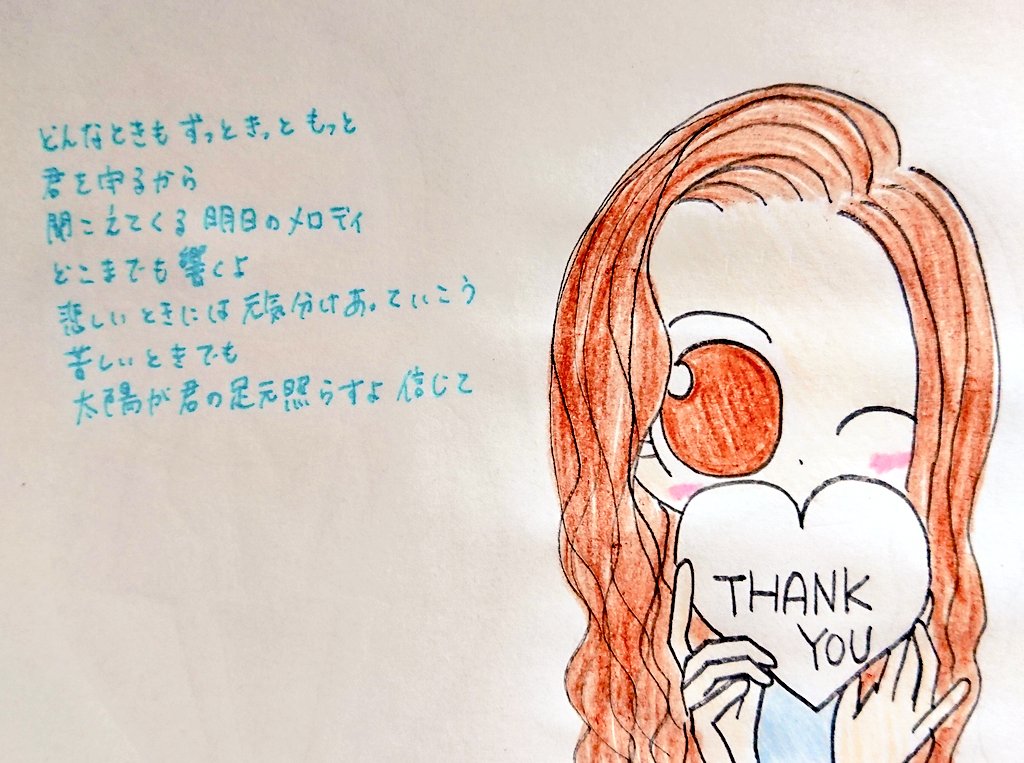 どんなときも ずっと きっと もっと
君を守るから
聞こえてくる 明日のメロディ
どこまでも響くよ
悲しいときには元気分けあっていこう
苦しいときでも
太陽が君の足元照らすよ 信じて
THANK
YOU